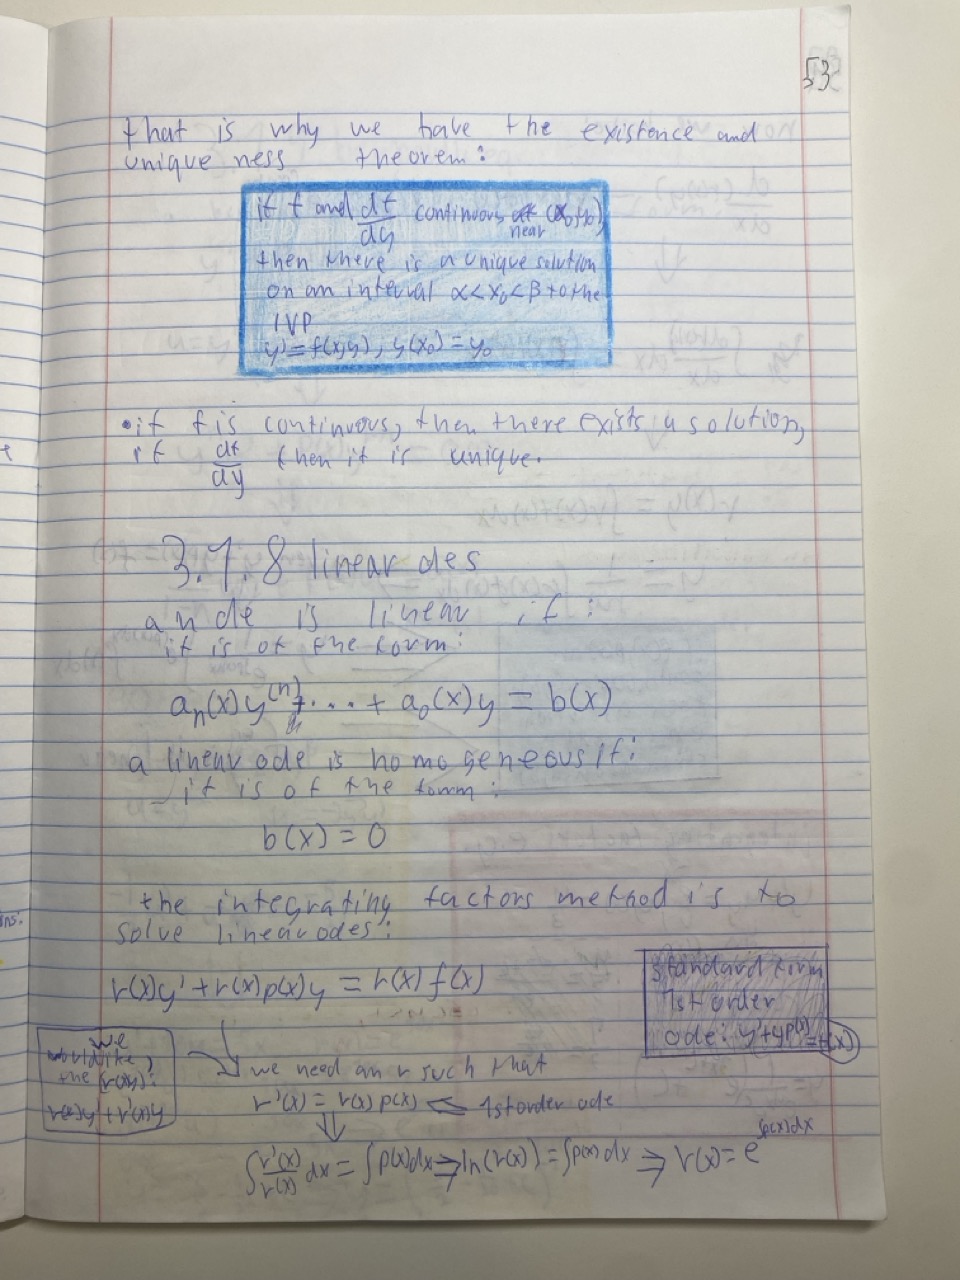 53
that is why we have the existence and
uniqueness theorem:
if f and df/dy continuous near (x₀,y₀)
then there is a unique solution
on an interval α<x₀<β to the
IVP
y' = f(x,y), y(x₀) = y₀
• if f is continuous, then there exists a solution,
if df/dy then it is unique.
3.7.8 linear des
an de is linear if:
it is of the form:
aₙ(x)y⁽ⁿ⁾+ . . . + a₀(x)y = b(x)
a linear ode is homogeneous if:
it is of the form:
b(x) = 0
the integrating factors method is to
solve linear odes:
r(x)y' + r(x)p(x)y = r(x)f(x)
standard form
1st order
ode: y'+yp(x)=f(x)
we
would like
the (r(x)y)':
r(x)y' + r'(x)y
we need an r such that
r'(x) = r(x)p(x) ⇐ 1st order ode
⇓
∫ r'(x)/r(x) dx = ∫p(x)dx ⇒ ln(r(x)) = ∫p(x)dx ⇒ r(x) = e^∫p(x)dx